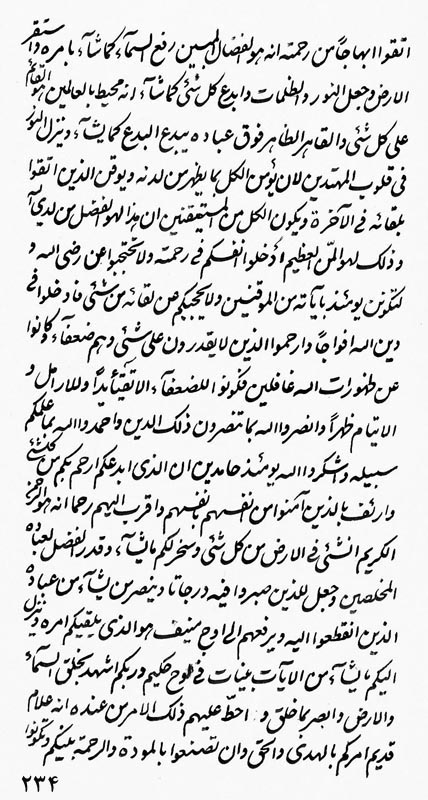 اتقوا ابهاجاً من رحمته انه هو لفضال المبين رفع السمآء كماشآء بامره واستقر
الارض وجعل النور والظلمات وابدع كل شئ كماشآء انه محيط بالعالمين هو القائم
على كل شئ والقاهر الطاهر فوق عباده يبدع البدع كمايشآء وينزل النور
فى قلوب المهتدين لان يؤمن الكل بما يظهر من لدنه ويوقن الذين اتقوا
بلقائه فى الآخرة ويكون الكل من المستيقنين ان هذا لهو الفضل من لدى الله
وذلك لهو المن العظيم ادخلوا انفسكم فى رحمته ولا تحتجبوا عن رضى الله و
لتكونن يومئذ بآياته من الموقنين ولا يحجبكم عن لقائه من شئ فادخلوا فى
دين الله افواجاً وارحموا الذين لا يقدرون على شئ وهم ضعفآء وكانوا
عن ظهورات الله غافلين فكونوا للضعفآء الاتقيآ يداً وللارامل و
الايتام ظهراً وانصروا الله بما تنصرون ذلك الدين واحمدوا الله بما علمكم
سبيله واشكروا الله يومئذ حامدين ان الذى ابدعكم ارحم بكم من كلشئ
وارئف بالذين آمنوا من انفسهم بنفسهم واقرب اليهم رحما انه هو الرحمن
الكريم انشئ فى الارض من كل شئ وسخر لكم مايشآء وقدر الفضل لعباده
المخلصين وجعل للذين صبروا فيه درجاتا وينصر من يشآء من عباده
الذين انقطعوا اليه ويرفعهم الى اوج منيف هو الذى يلقيكم امره وينزل
اليكم مايشآء من الآيات بينات فى لوح حكيم وربكم اشهد بخلق السمآء
والارض وابصر بما خلق و احط عليهم ذلك الامر من عنده انه علام
قديم امركم بالهدى والحق وان تصنعوا بالمودة والرحمة بينكم وتكونوا
٢٣۴